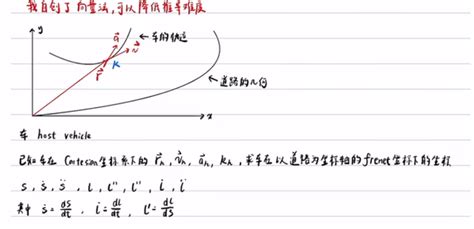 我自创了向量法,可以降低推导难度
y
a
车的轨迹
v
K
r
道路的几何
x
车 host vehicle
已知车在 Cartesian坐标系下的 r⃗ₕ, v⃗ₕ, a⃗ₕ, kₕ, 求车在以道路为坐标轴的frenet坐标下的坐标
s, ṡ, s̈, l, l', l'', l̇, l̈
其中 ṡ = ds/dt, l̇ = dl/dt, l' = dl/ds